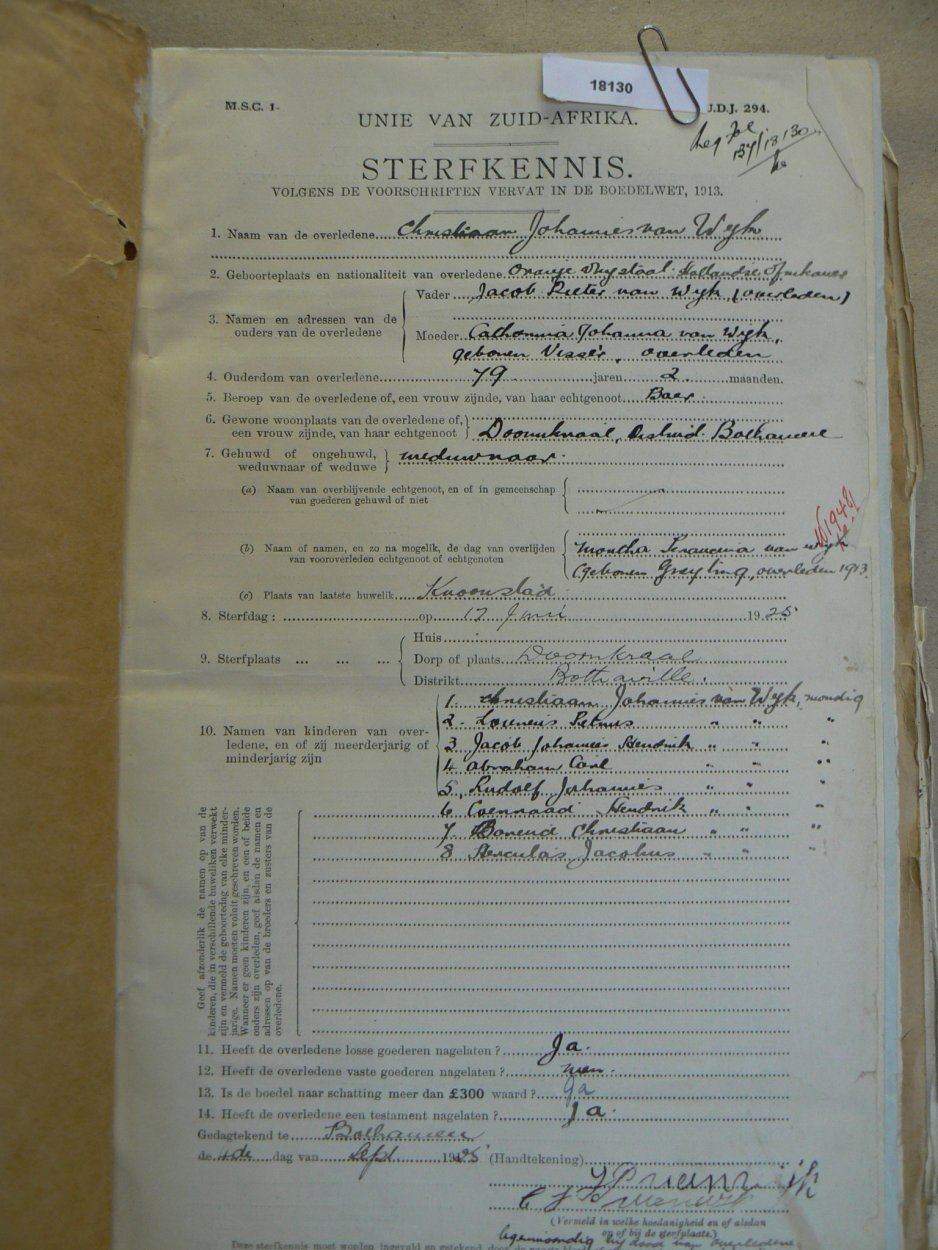 18130
M.S.C. 1.
J.D.J. 294.
UNIE VAN ZUID-AFRIKA.
137/18130
STERFKENNIS.
VOLGENS DE VOORSCHRIFTEN VERVAT IN DE BOEDELWET, 1913.
1. Naam van de overledene Christiaan Johannes van Wyk
2. Geboorteplaats en nationaliteit van overledene. Oranje Vrystaat Hollandse Afrikaner
Vader Jacob Pieter van Wyk, (overleden)
3. Namen en adressen van de
ouders van de overledene
Moeder Catharina Johanna van Wyk,
geboren Visser, overleden
4. Ouderdom van overledene 79 jaren 2 maanden.
5. Beroep van de overledene of, een vrouw zijnde, van haar echtgenoot Boer.
6. Gewone woonplaats van de overledene of,
een vrouw zijnde, van haar echtgenoot Doornkraal, Distrikt Bothaville
7. Gehuwd of ongehuwd,
weduwnaar of weduwe weduwnaar.
(a) Naam van overblijvende echtgenoot, en of in gemeenschap
van goederen gehuwd of niet
(b) Naam of namen, en zo na mogelik, de dag van overlijden
van vooroverleden echtgenoot of echtgenoten
Martha Francina van Wyk
(geboren Greyling, overleden 1913
(c) Plaats van laatste huwelik Kroonstad
8. Sterfdag : op 17 Junii 1925
Huis
9. Sterfplaats ... ... ... Dorp of plaats Doornkraal
Distrikt Bothaville.
1. Christiaan Johannes van Wyk, mondig
2. Lourens Petrus " " "
10. Namen van kinderen van over-
ledene, en of zij meerderjarig of
minderjarig zijn
3 Jacob Johannes Hendrik " " "
4 Abraham Carl " " "
5, Rudolf Johannes " " "
6 Coenraad Hendrik " " "
7 Barend Christiaan " " "
8 Herculas Jacobus " " "
Geef afzonderlik de namen op van de
kinderen, die in verschillende huweliken verwekt
zijn en vermeld de geboortedag van elke minder-
jarige. Namen moeten voluit geschreven worden.
Wanneer er geen kinderen zijn, en een of beide
ouders zijn overleden, geef alsdan de namen en
adressen op van de broeders en zusters van de
overledene.
11. Heeft de overledene losse goederen nagelaten ? Ja.
12. Heeft de overledene vaste goederen nagelaten ? neen.
13. Is de boedel naar schatting meer dan £300 waard ? Ja
14. Heeft de overledene een testament nagelaten ? Ja.
Gedagtekend te Bothaville
de 4de dag van Sept 1925 (Handtekening)
(Vermeld in welke hoedanigheid en of alsdan
en of bij de sterfplaats.)
tegenwoordig bij dood van overledene
Deze sterfkennis moet worden ingevuld en getekend door de